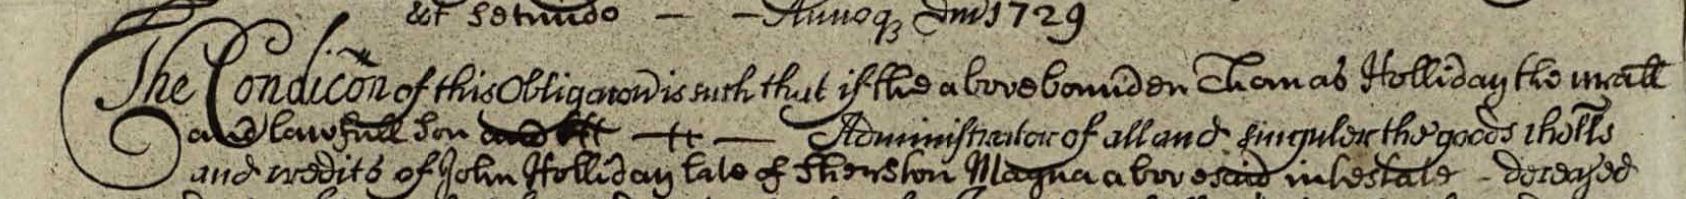 & Secundo — — Annoq, Dm̄ 1729
The Condicōn of this Obligacon is such that if the above bounden Thomas Holliday the nrāll
and lawfull Son — Administrator of all and singuler the goods chells
and credits of John Holliday late of Sherston Magna abovesaid intestate - deceased